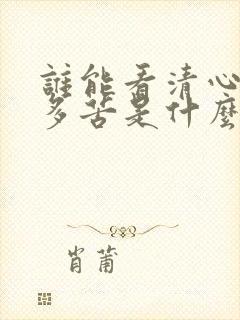 誰能看清心
多苦是什麼
肖莆